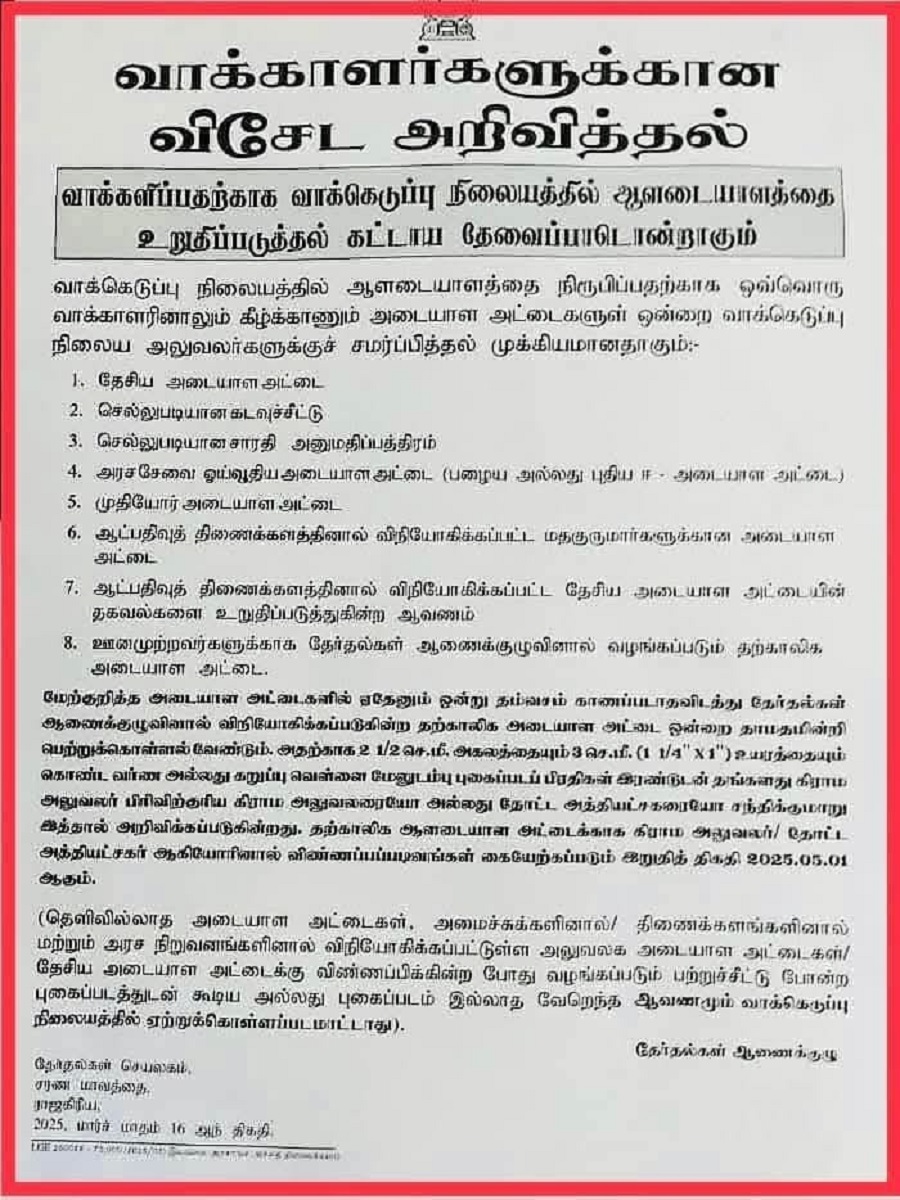 வாக்காளர்களுக்கான
விசேட அறிவித்தல்
வாக்களிப்பதற்காக வாக்கெடுப்பு நிலையத்தில் ஆளடையாளத்தை
உறுதிப்படுத்தல் கட்டாய தேவைப்பாடொன்றாகும்
வாக்கெடுப்பு நிலையத்தில் ஆளடையாளத்தை நிரூபிப்பதற்காக ஒவ்வொரு
வாக்காளரினாலும் கீழ்க்காணும் அடையாள அட்டைகளுள் ஒன்றை வாக்கெடுப்பு
நிலைய அலுவலர்களுக்குச் சமர்ப்பித்தல் முக்கியமானதாகும்:-
1. தேசிய அடையாள அட்டை
2. செல்லுபடியான கடவுச்சீட்டு
3. செல்லுபடியான சாரதி அனுமதிப்பத்திரம்
4. அரச சேவை ஓய்வூதிய அடையாள அட்டை (பழைய அல்லது புதிய ஈ - அடையாள அட்டை)
5. முதியோர் அடையாள அட்டை
6. ஆட்பதிவுத் திணைக்களத்தினால் விநியோகிக்கப்பட்ட மதகுருமார்களுக்கான அடையாள
அட்டை
7. ஆட்பதிவுத் திணைக்களத்தினால் விநியோகிக்கப்பட்ட தேசிய அடையாள அட்டையின்
தகவல்களை உறுதிப்படுத்துகின்ற ஆவணம்
8. ஊனமுற்றவர்களுக்காக தேர்தல்கள் ஆணைக்குழுவினால் வழங்கப்படும் தற்காலிக
அடையாள அட்டை.
மேற்குறித்த அடையாள அட்டைகளில் ஏதேனும் ஒன்று தம்வசம் காணப்படாதவிடத்து தேர்தல்கள்
ஆணைக்குழுவினால் விநியோகிக்கப்படுகின்ற தற்காலிக அடையாள அட்டை ஒன்றை தாமதமின்றி
பெற்றுக்கொள்ளல் வேண்டும். அதற்காக 2 1/2 செ.மீ. அகலத்தையும் 3 செ.மீ. (1 1/4" X 1") உயரத்தையும்
கொண்ட வர்ண அல்லது கறுப்பு வெள்ளை மேலுடம்பு புகைப்படப் பிரதிகள் இரண்டுடன் தங்களது கிராம
அலுவலர் பிரிவிற்குரிய கிராம அலுவலரையோ அல்லது தோட்ட அத்தியட்சகரையோ சந்திக்குமாறு
இத்தால் அறிவிக்கப்படுகின்றது. தற்காலிக ஆளடையாள அட்டைக்காக கிராம அலுவலர்/ தோட்ட
அத்தியட்சகர் ஆகியோரினால் விண்ணப்பப்படிவங்கள் கையேற்கப்படும் இறுதித் திகதி 2025.05.01
ஆகும்.
(தெளிவில்லாத அடையாள அட்டைகள், அமைச்சுக்களினால்/ திணைக்களங்களினால்
மற்றும் அரச நிறுவனங்களினால் விநியோகிக்கப்பட்டுள்ள அலுவலக அடையாள அட்டைகள்/
தேசிய அடையாள அட்டைக்கு விண்ணப்பிக்கின்ற போது வழங்கப்படும் பற்றுச்சீட்டு போன்ற
புகைப்படத்துடன் கூடிய அல்லது புகைப்படம் இல்லாத வேறெந்த ஆவணமும் வாக்கெடுப்பு
நிலையத்தில் ஏற்றுக்கொள்ளப்படமாட்டாது).
தேர்தல்கள் ஆணைக்குழு
தேர்தல்கள் செயலகம்,
சரண மாவத்தை,
ராஜகிரிய,
2025, மார்ச் மாதம் 16 ஆந் திகதி.